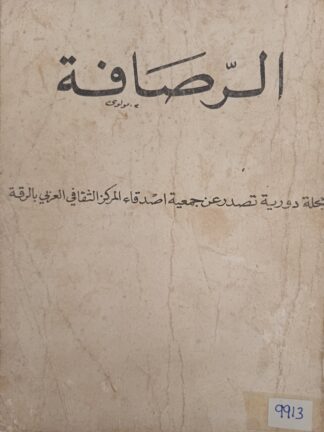 الرّصَافة
م. مولوي
مجلة دورية تصدر عن جمعية اصدقاء المركز الثقافي العربي بالرقة
9913